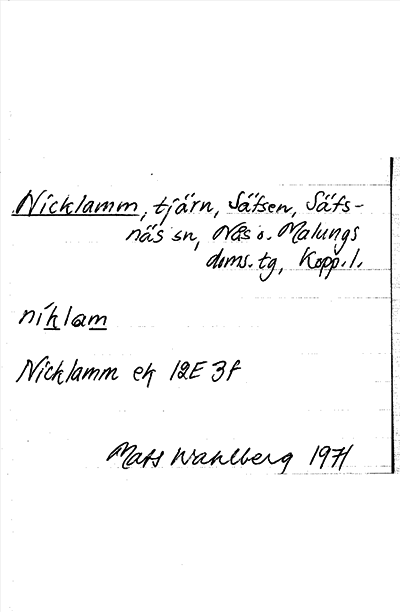 Nicklamm, tjärn, Säfsen, Säfs-
näs sn, Nås o. Malungs
doms.tg, Kopp.l.
níklam
Nicklamm ek 12E 3f
Mats Wahlberg 1971